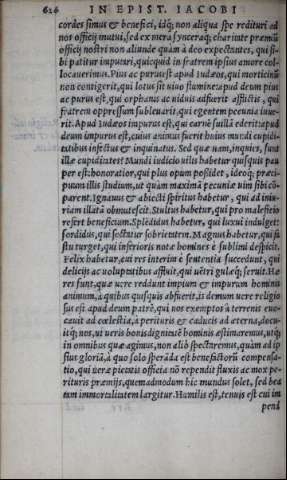 626 IN EPIST. IACOBI
cordes simus & benefici, idq; non aliqua spe redituri ad
nos officij mutui, sed ex mera synceraq; charitate præmiũ
officij nostri non aliunde quàm à deo expectantes, qui si-
bi patitur imputari, quicquid in fratrem ipsius amore col-
locauerimus. Pius ac purus est apud Iudæos, qui morticinũ
non contigerit, qui lotus sit uiuo flumine: apud deum pius
ac purus est, qui orphanis ac uiduis adfuerit afflictis, qui
fratrem oppressum subleuarit, qui egentem pecunia iuue-
rit. Apud Iudæos impurus est, qui carnẽ suillã ederit: apud
deum impurus est, cuius animus fuerit huius mundi cupidi-
tatibus infectus & inquinatus. Sed quæ nam, inquies, sunt
illæ cupiditates? Mundi iudicio uilis habetur quisquis pau
per est: honoratior, qui plus opum possidet, ideoq; præci-
puum illis studium, ut quàm maximã pecuniæ uim sibi cõ-
parent. Ignauus & abiecti spiritus habetur, qui ad iniu-
riam illatã obmutescit. Stultus habetur, qui pro maleficio
refert beneficium. Splẽdidus habetur, qui luxui indulget:
sordidus, qui sectatur sobrietatem. Magnus habetur, qui fa
stu turget, qui inferioris notæ homines è sublimi despicit.
Felix habetur, cui res interim è sententia succedunt, qui
delicijs ac uoluptatibus affluit, qui uẽtri gulæq; seruit. Hæ
res sunt, quæ uere reddunt impium & impurum hominis
animum, à quibus quisquis abfuerit, is demum uere religio
sus est apud deum patrẽ, qui nos exemptos à terrenis euo-
cauit ad cœlestia, à perituris & caducis ad æterna, docu-
itq; nos, ut ueris bonis dignitatẽ hominis æstimaremus, utq;
in omnibus quæ agimus, non alib spectaremus, quàm ad ip
sius gloriã, à quo solo sperãda est benefactorũ compensa-
tio, qui ueræ pietatis officia nõ rependit fluxis ac mox pe-
rituris præmijs, quemadmodum hic mundus solet, sed bea
tam immortalitatem largitur. Humilis est, tenuis est cui im
pend